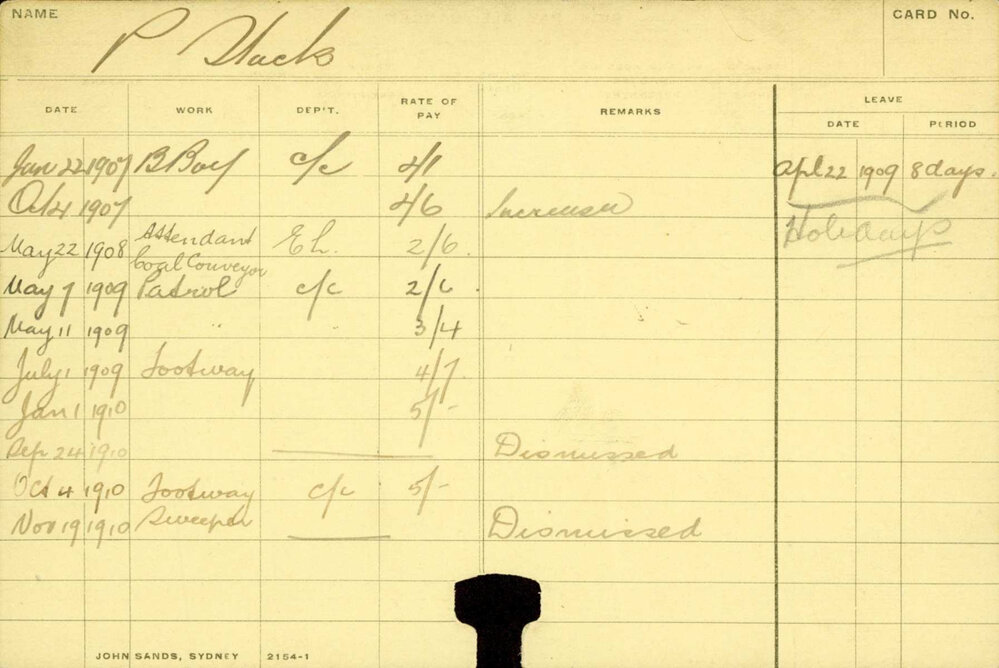 NAME
P
CARD No.
DATE WORK DEP'T. RATE OF PAY REMARKS LEAVE
DATE PERIOD
Jan 22 1907 B Boy c/c Apl 22 1909 8 days.
Oct 4 1907 Increase Holidays
May 22 1908 Attendant Coal Conveyor E L. 2/6
May 7 1909 Patrol c/c 2/6
May 11 1909 " " 3/4
July 1 1909 Footway 4/7
Jan 1 1910 5/-
Sep 24 1910 Dismissed
Oct 4 1910 Footway Sweeper c/c 5/-
Nov 19 1910 Dismissed
JOHN SANDS, SYDNEY 2154-1